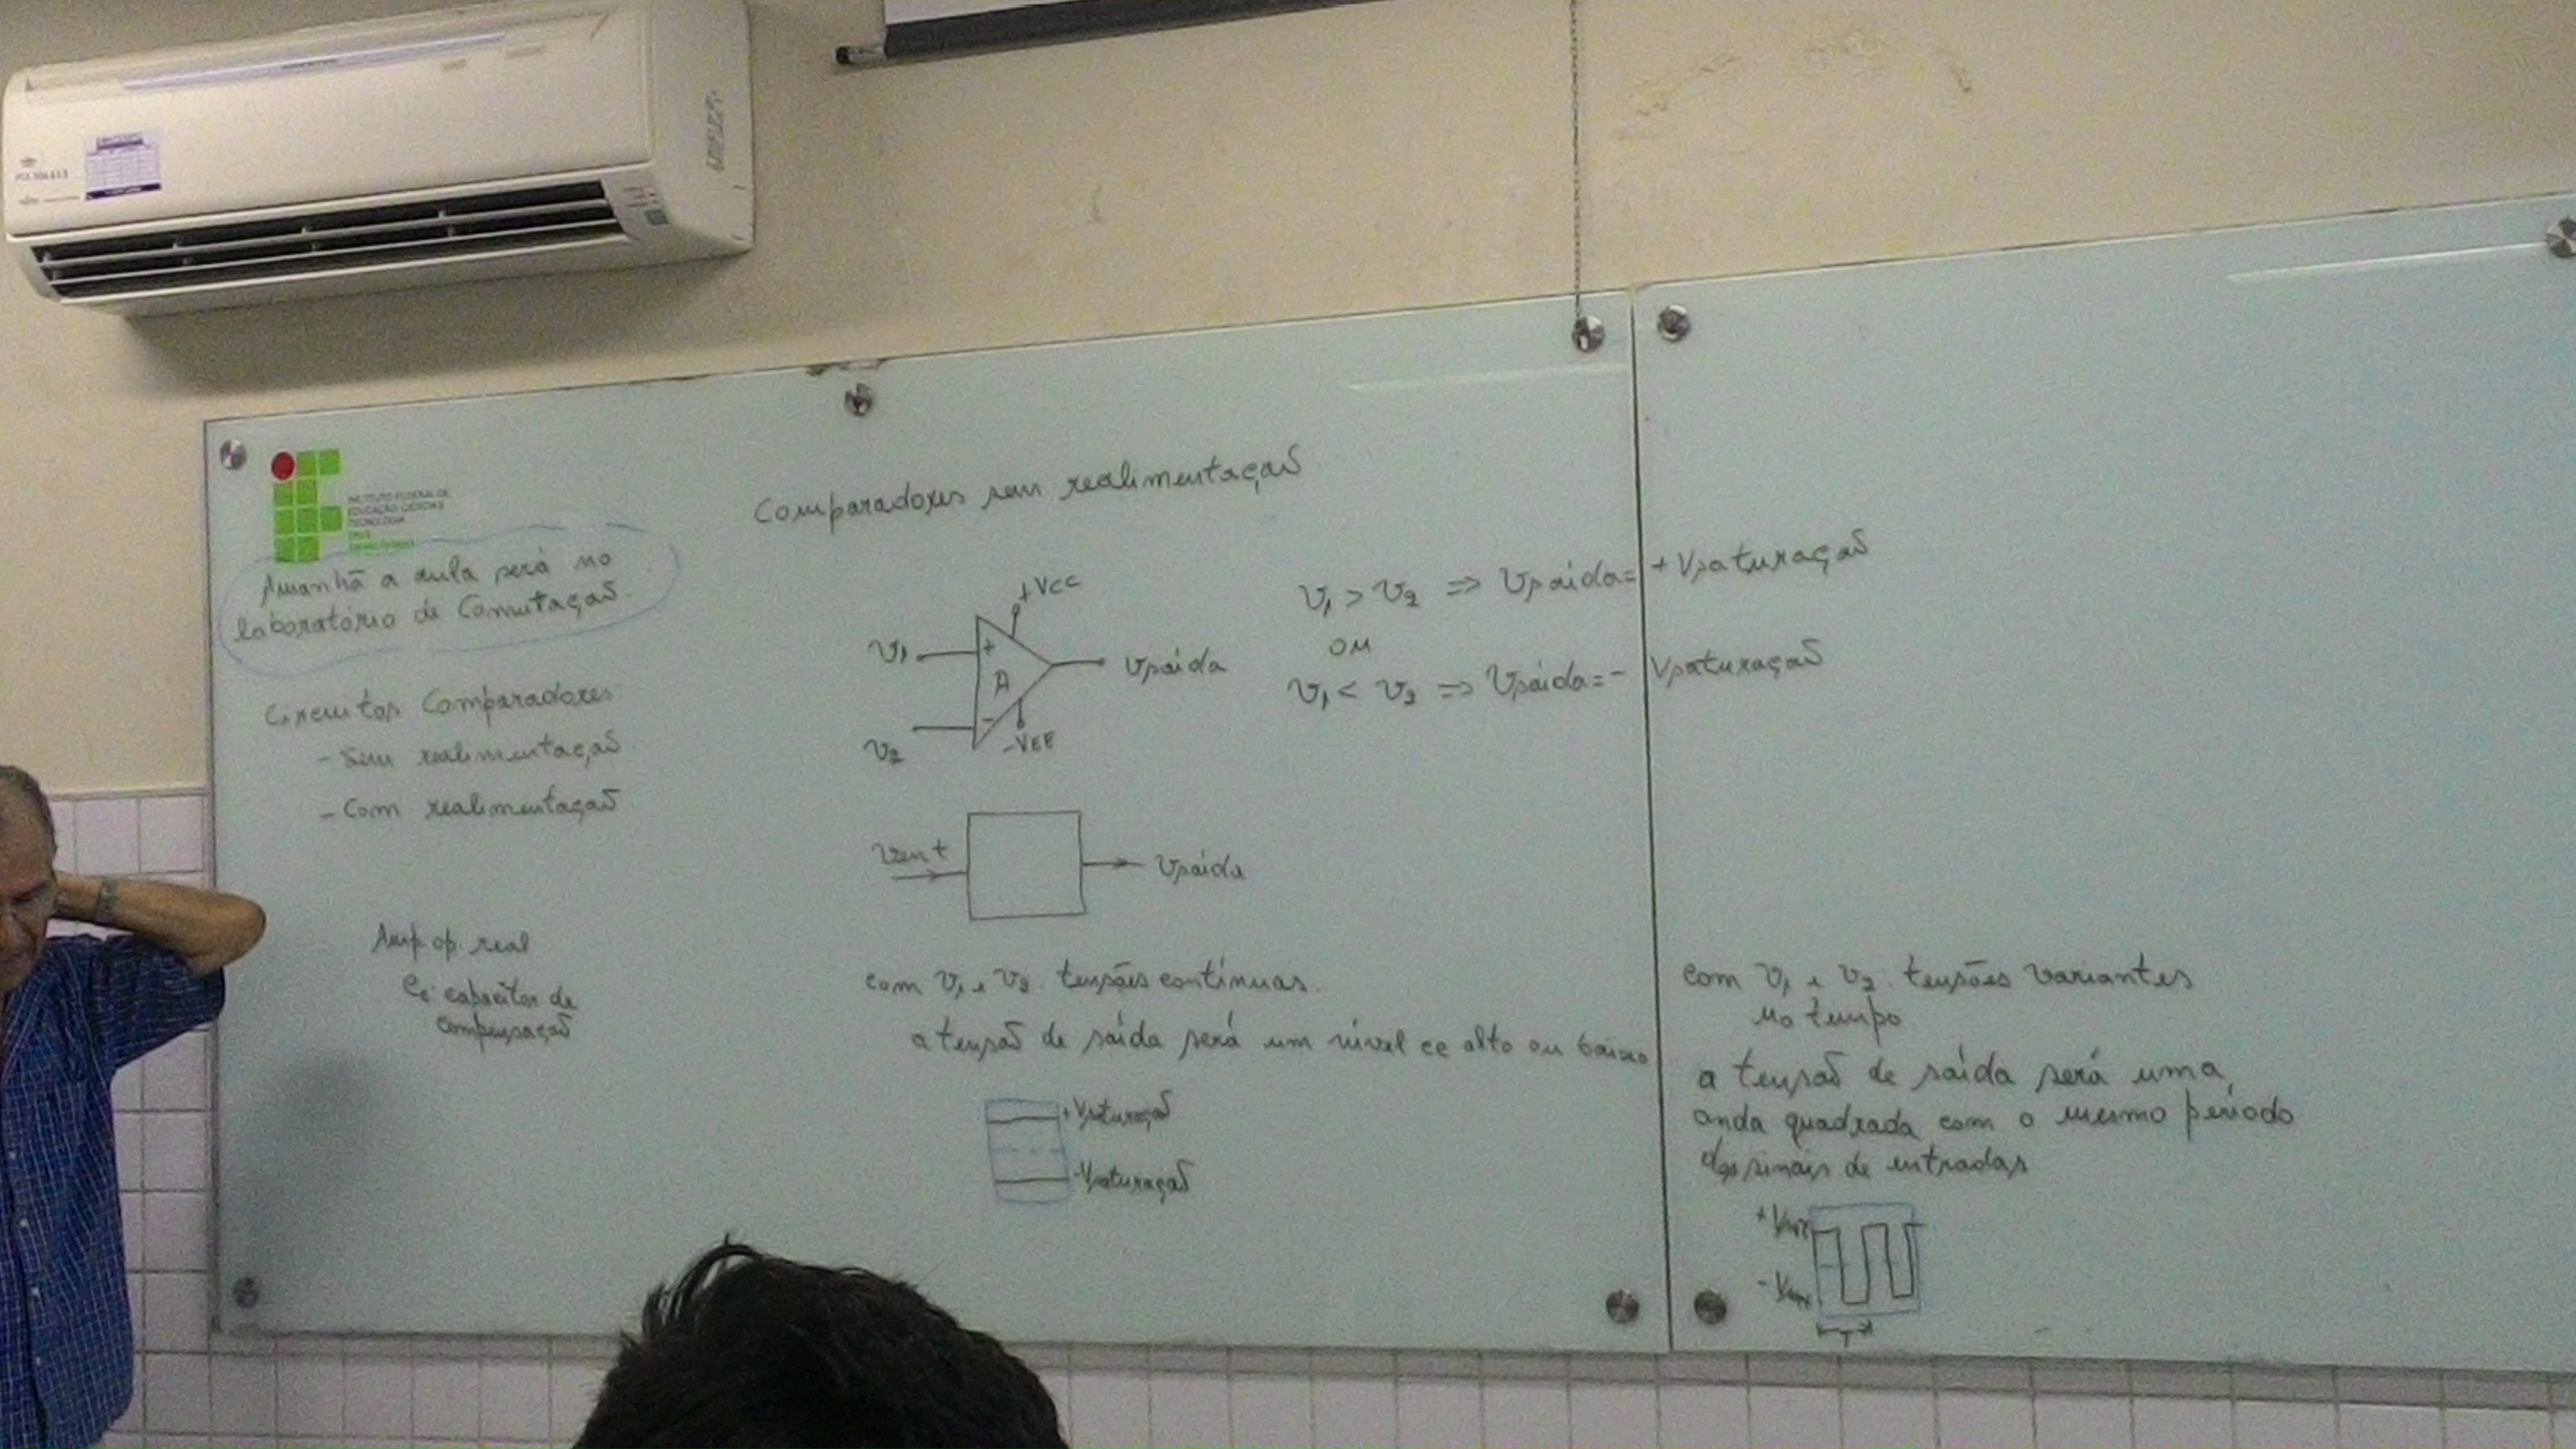 INSTITUTO FEDERAL DE
EDUCAÇÃO, CIÊNCIA E
TECNOLOGIA
Amanhã a aula será no
laboratório de Comutação.
Circuitos Comparadores
- Sem realimentação
- Com realimentação
Amp. op. real
Cc: capacitor de
compensação
Comparadores sem realimentação
+VCC
v1
+
A
vsaída
-
v2
-VEE
v1 > v2 => vsaída = + Vsaturação
ou
v1 < v2 => vsaída = - Vsaturação
vent
vsaída
com v1 e v2 tensões contínuas.
a tensão de saída será um nível cc alto ou baixo
+Vsaturação
-Vsaturação
com v1 e v2 tensões variantes
no tempo
a tensão de saída será uma
onda quadrada com o mesmo período
dos sinais de entradas
+Vsat
-Vsat
T